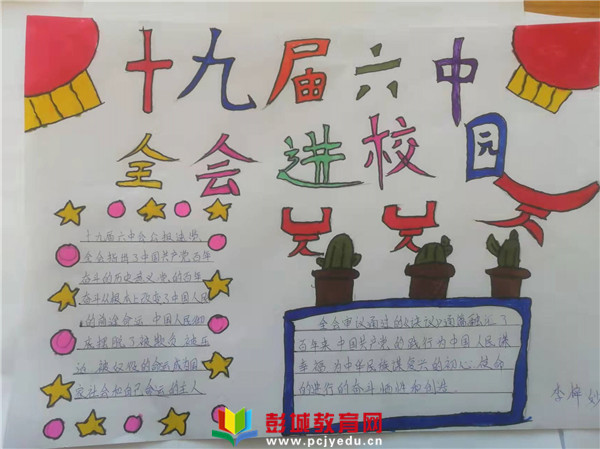 十九届六中
全会进校园
十九届六中全会极速学
全会指出了中国共产党百年
奋斗的历史意义党的百年
奋斗从根本上改变了中国人民
的前途命运中国人民彻
底摆脱了被欺负被压
迫被奴役的命运成为国
家社会和自己命运的主人
全会审议通过的《决议》通篇融汇了
百年来中国共产党的践行为中国人民谋
幸福为中华民族谋复兴的初心使命
的进行的奋斗牺牲和创造
李梓
彭城教育网
www.pcjyedu.cn